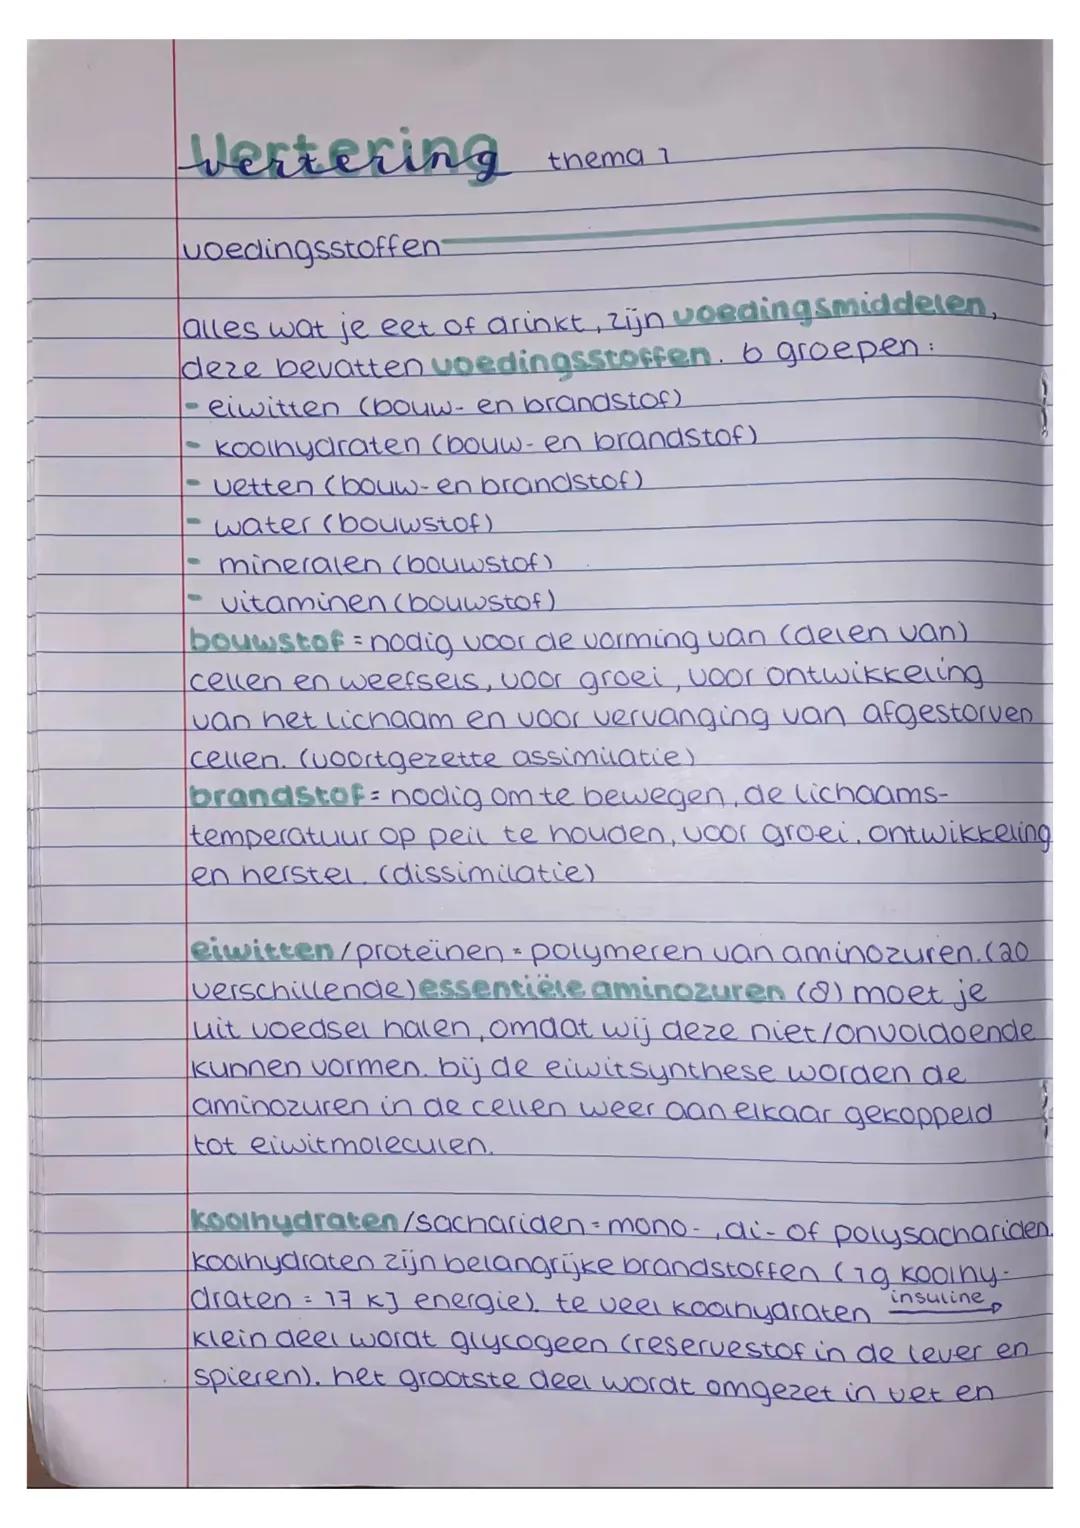 Vertering thema 1
voedingsstoffen
alles wat je eet of drinkt, zijn voedingsmiddelen,
deze bevatten voedingsstoffen. 6 groepen:
- eiwitten (bouw- en brandstof)
- koolhydraten (bouw- en brandstof)
- vetten (bouw- en brandstof)
- water (bouwstof)
- mineralen (bouwstof)
- vitaminen (bouwstof)
bouwstof = nodig voor de vorming van (delen van)
cellen en weefsels, voor groei, voor ontwikkeling
van het lichaam en voor vervanging van afgestorven
cellen. (voortgezette assimilatie)
brandstof = nodig om te bewegen, de lichaams-
temperatuur op peil te houden, voor groei, ontwikkeling
en herstel. (dissimilatie)
eiwitten/proteïnen = polymeren van aminozuren. (20
verschillende) essentiële aminozuren (8) moet je
uit voedsel halen, omdat wij deze niet/onvoldoende
kunnen vormen. bij de eiwitsynthese worden de
aminozuren in de cellen weer aan elkaar gekoppeld
tot eiwitmoleculen.
koolhydraten/sachariden = mono-, di- of polysachariden.
koolhydraten zijn belangrijke brandstoffen (1g koolhy-
draten = 17 kJ energie). te veel koolhydraten insuline →
klein deel wordt glycogeen (reservestof in de lever en
spieren). het grootste deel wordt omgezet in vet en